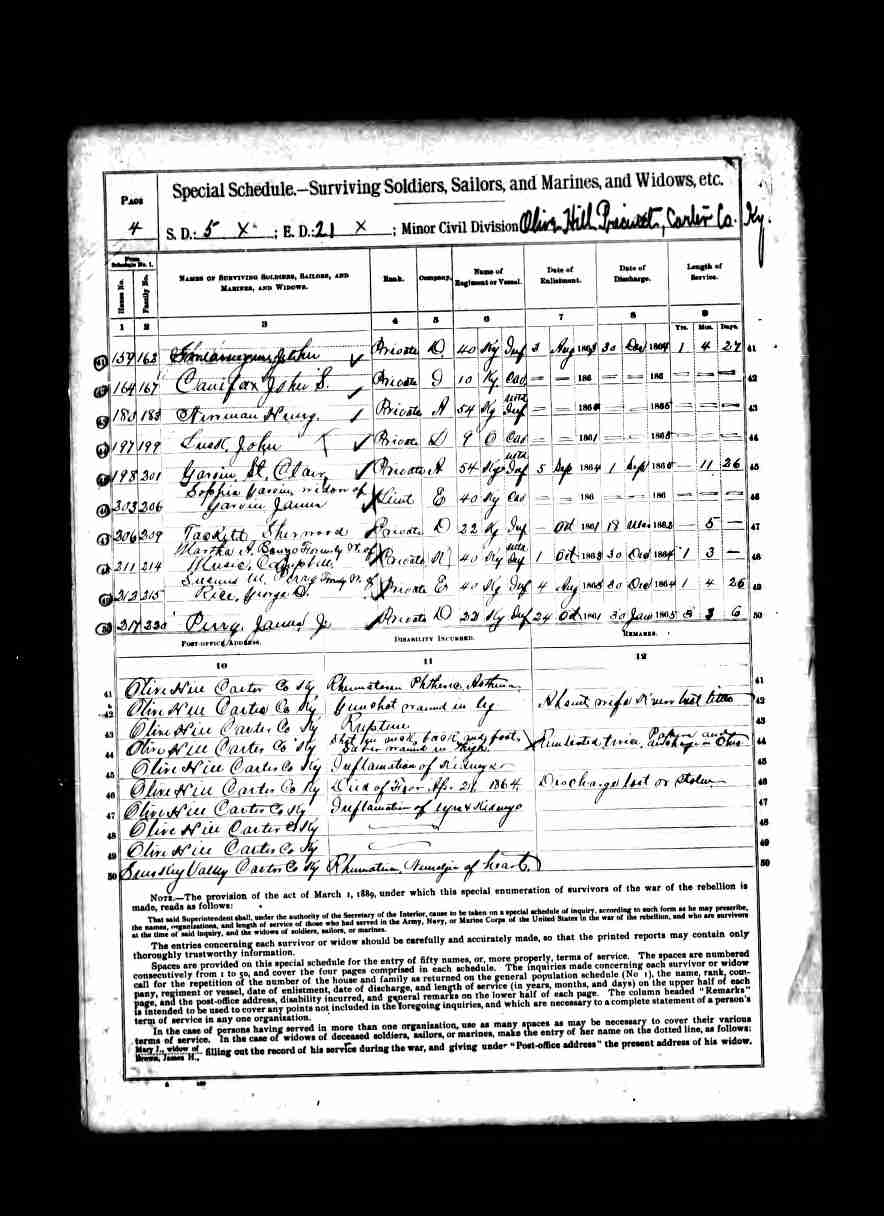 PAGE
4
Special Schedule.—Surviving Soldiers, Sailors, and Marines, and Widows, etc.
S. D.: 5 X ; E. D.: 21 X ; Minor Civil Division Olive Hill Precinct, Carter Co. Ky.
From Schedule No. 1.
House No. Family No. NAMES OF SURVIVING SOLDIERS, SAILORS, AND MARINES, AND WIDOWS. Rank. Company. Name of Regiment or Vessel. Date of Enlistment. Date of Discharge. Length of Service.
1 2 3 4 5 6 7 8 9
Yrs. Mos. Days.
41 159 163 Private D 40 Ky Inf 3 Aug 1863 30 Dec 1864 1 4 27 41
42 164 167 John S. Private 10 Ky Cav = = 186 = = 186 = = = 42
43 183 183 Private A 54 Ky mtd Inf = = 186 = = 1865 = = = 43
44 197 199 Lusk, John Private 9 O Cav = = 1861 = = 1865 = = = 44
45 198 201 Garvin St. Clair Private A 54 Ky mtd Inf 5 Sep 1864 1 Sept 1865 — 11 26 45
46 203 206 Sophia Garvin widow of Garvin James Lieut E 40 Ky Cav = = 186 = = 186 = = = 46
47 206 209 Tackett, Sherwood Private D 22 Ky Inf — Oct 1861 18 — 5 — 47
48 211 214 Martha A. Formerly W. of Music, Private 40 Ky mtd Inf 1 Oct 1863 30 Dec 1864 1 3 — 48
49 212 215 Formly W. of Rice, George Private E 40 Ky Inf 4 Aug 1863 30 Dec 1864 1 4 26 49
50 217 220 Perry, James Jr Private D 22 Ky Inf 24 Oct 1861 30 Jan 1865 3 3 6 50
POST-OFFICE ADDRESS. DISABILITY INCURRED. REMARKS.
10 11 12
41 Olive Hill Carter Co Ky Asthma 41
42 Olive Hill Carter Co Ky Gunshot wound in leg 42
43 Olive Hill Carter Co Ky Rupture 43
44 Olive Hill Carter Co Ky Shot in neck, back and foot, Saber wound in thigh. 44
45 Olive Hill Carter Co Ky Inflamation of Kidneys 45
46 Olive Hill Carter Co Ky Died of Apr. 21, 1864 Discharge lost or stolen 46
47 Olive Hill Carter Co Ky Inflamation of eyes & Kidneys 47
48 Olive Hill Carter Co Ky 48
49 Olive Hill Carter Co Ky 49
50 Valley Carter Co Ky Neuralgia of heart 50
NOTE.—The provision of the act of March 1, 1889, under which this special enumeration of survivors of the war of the rebellion is
made, reads as follows:
That said Superintendent shall, under the authority of the Secretary of the Interior, cause to be taken on a special schedule of inquiry, according to such form as he may prescribe,
the names, organizations, and length of service of those who had served in the Army, Navy, or Marine Corps of the United States in the war of the rebellion, and who are survivors
at the time of said inquiry, and the widows of soldiers, sailors, or marines.
The entries concerning each survivor or widow should be carefully and accurately made, so that the printed reports may contain only
thoroughly trustworthy information.
Spaces are provided on this special schedule for the entry of fifty names, or, more properly, terms of service. The spaces are numbered
consecutively from 1 to 50, and cover the four pages comprised in each schedule. The inquiries made concerning each survivor or widow
call for the repetition of the number of the house and family as returned on the general population schedule (No 1), the name, rank, com-
pany, regiment or vessel, date of enlistment, date of discharge, and length of service (in years, months, and days) on the upper half of each
page, and the post-office address, disability incurred, and general remarks on the lower half of each page. The column headed "Remarks"
is intended to be used to cover any points not included in the foregoing inquiries, and which are necessary to a complete statement of a person's
term of service in any one organization.
In the case of persons having served in more than one organization, use as many spaces as may be necessary to cover their various
terms of service. In the case of widows of deceased soldiers, sailors, or marines, make the entry of her name on the dotted line, as follows:
Mary J., widow of
Brown, James H., filling out the record of his service during the war, and giving under "Post-office address" the present address of his widow.